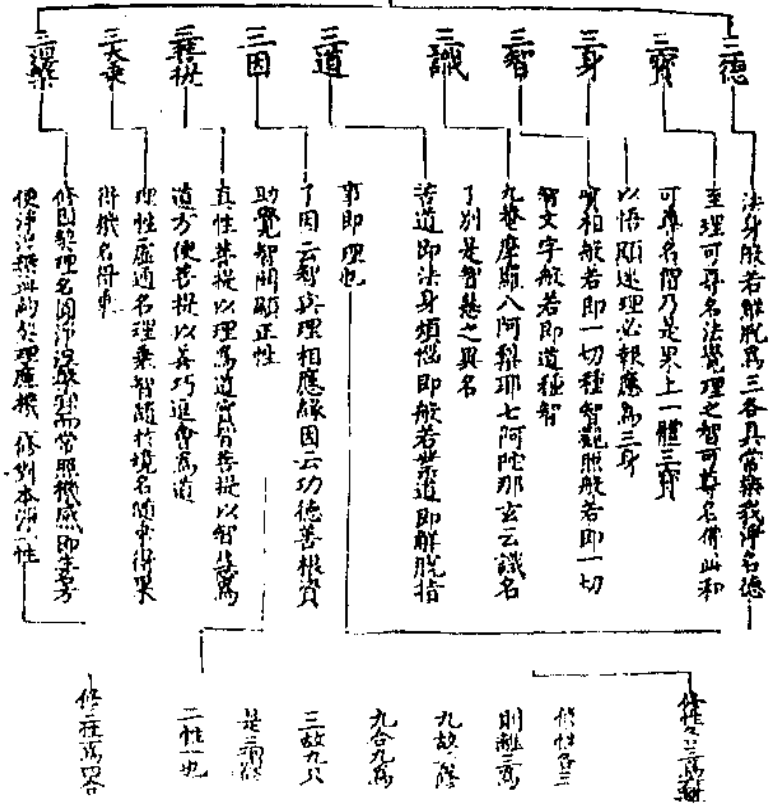 三德
三寶
三身
三智
三識
三道
三因
三菩提
三大乘
三涅槃
法身般若解脫為三各具常樂我淨名德
至理可尊名法覺理之智可尊名佛此和
可尊名僧乃是果上一體三寶
以悟顯迷理必報應為三身
實相般若即一切種智觀照般若即一切
智文字般若即道種智
九菴摩羅八阿黎耶七阿陀那玄云識名
了別是智慧之異名
苦道即法身煩惱即般若業道即解脫指
事即理也
了因云智與理相應緣因云功德善根資
助覺智開顯正性
真性菩提以理為道實智菩提以智慧為
道方便菩提以善巧逗會為道
理性虛通名理乘智隨於境名隨乘得果
得機名得乘
修因契理名圓淨 而常照機感即生名方
便淨 理應機 修 本 性
修性各三為離
修性各三
則離三為
九故 修
九合九為
三故九只
是三 修
二性一也
修二性一為合